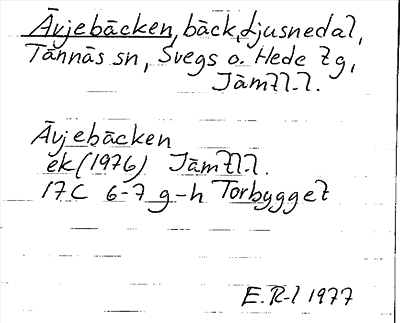 Āvjebäcken, bäck, Ljusnedal,
Tännäs sn, Svegs o. Hede tg,
Jämtl.l.
Āvjebäcken
ek (1976) Jämtl.l.
17C 6-7 g-h Torbygget
E.R-l 1977